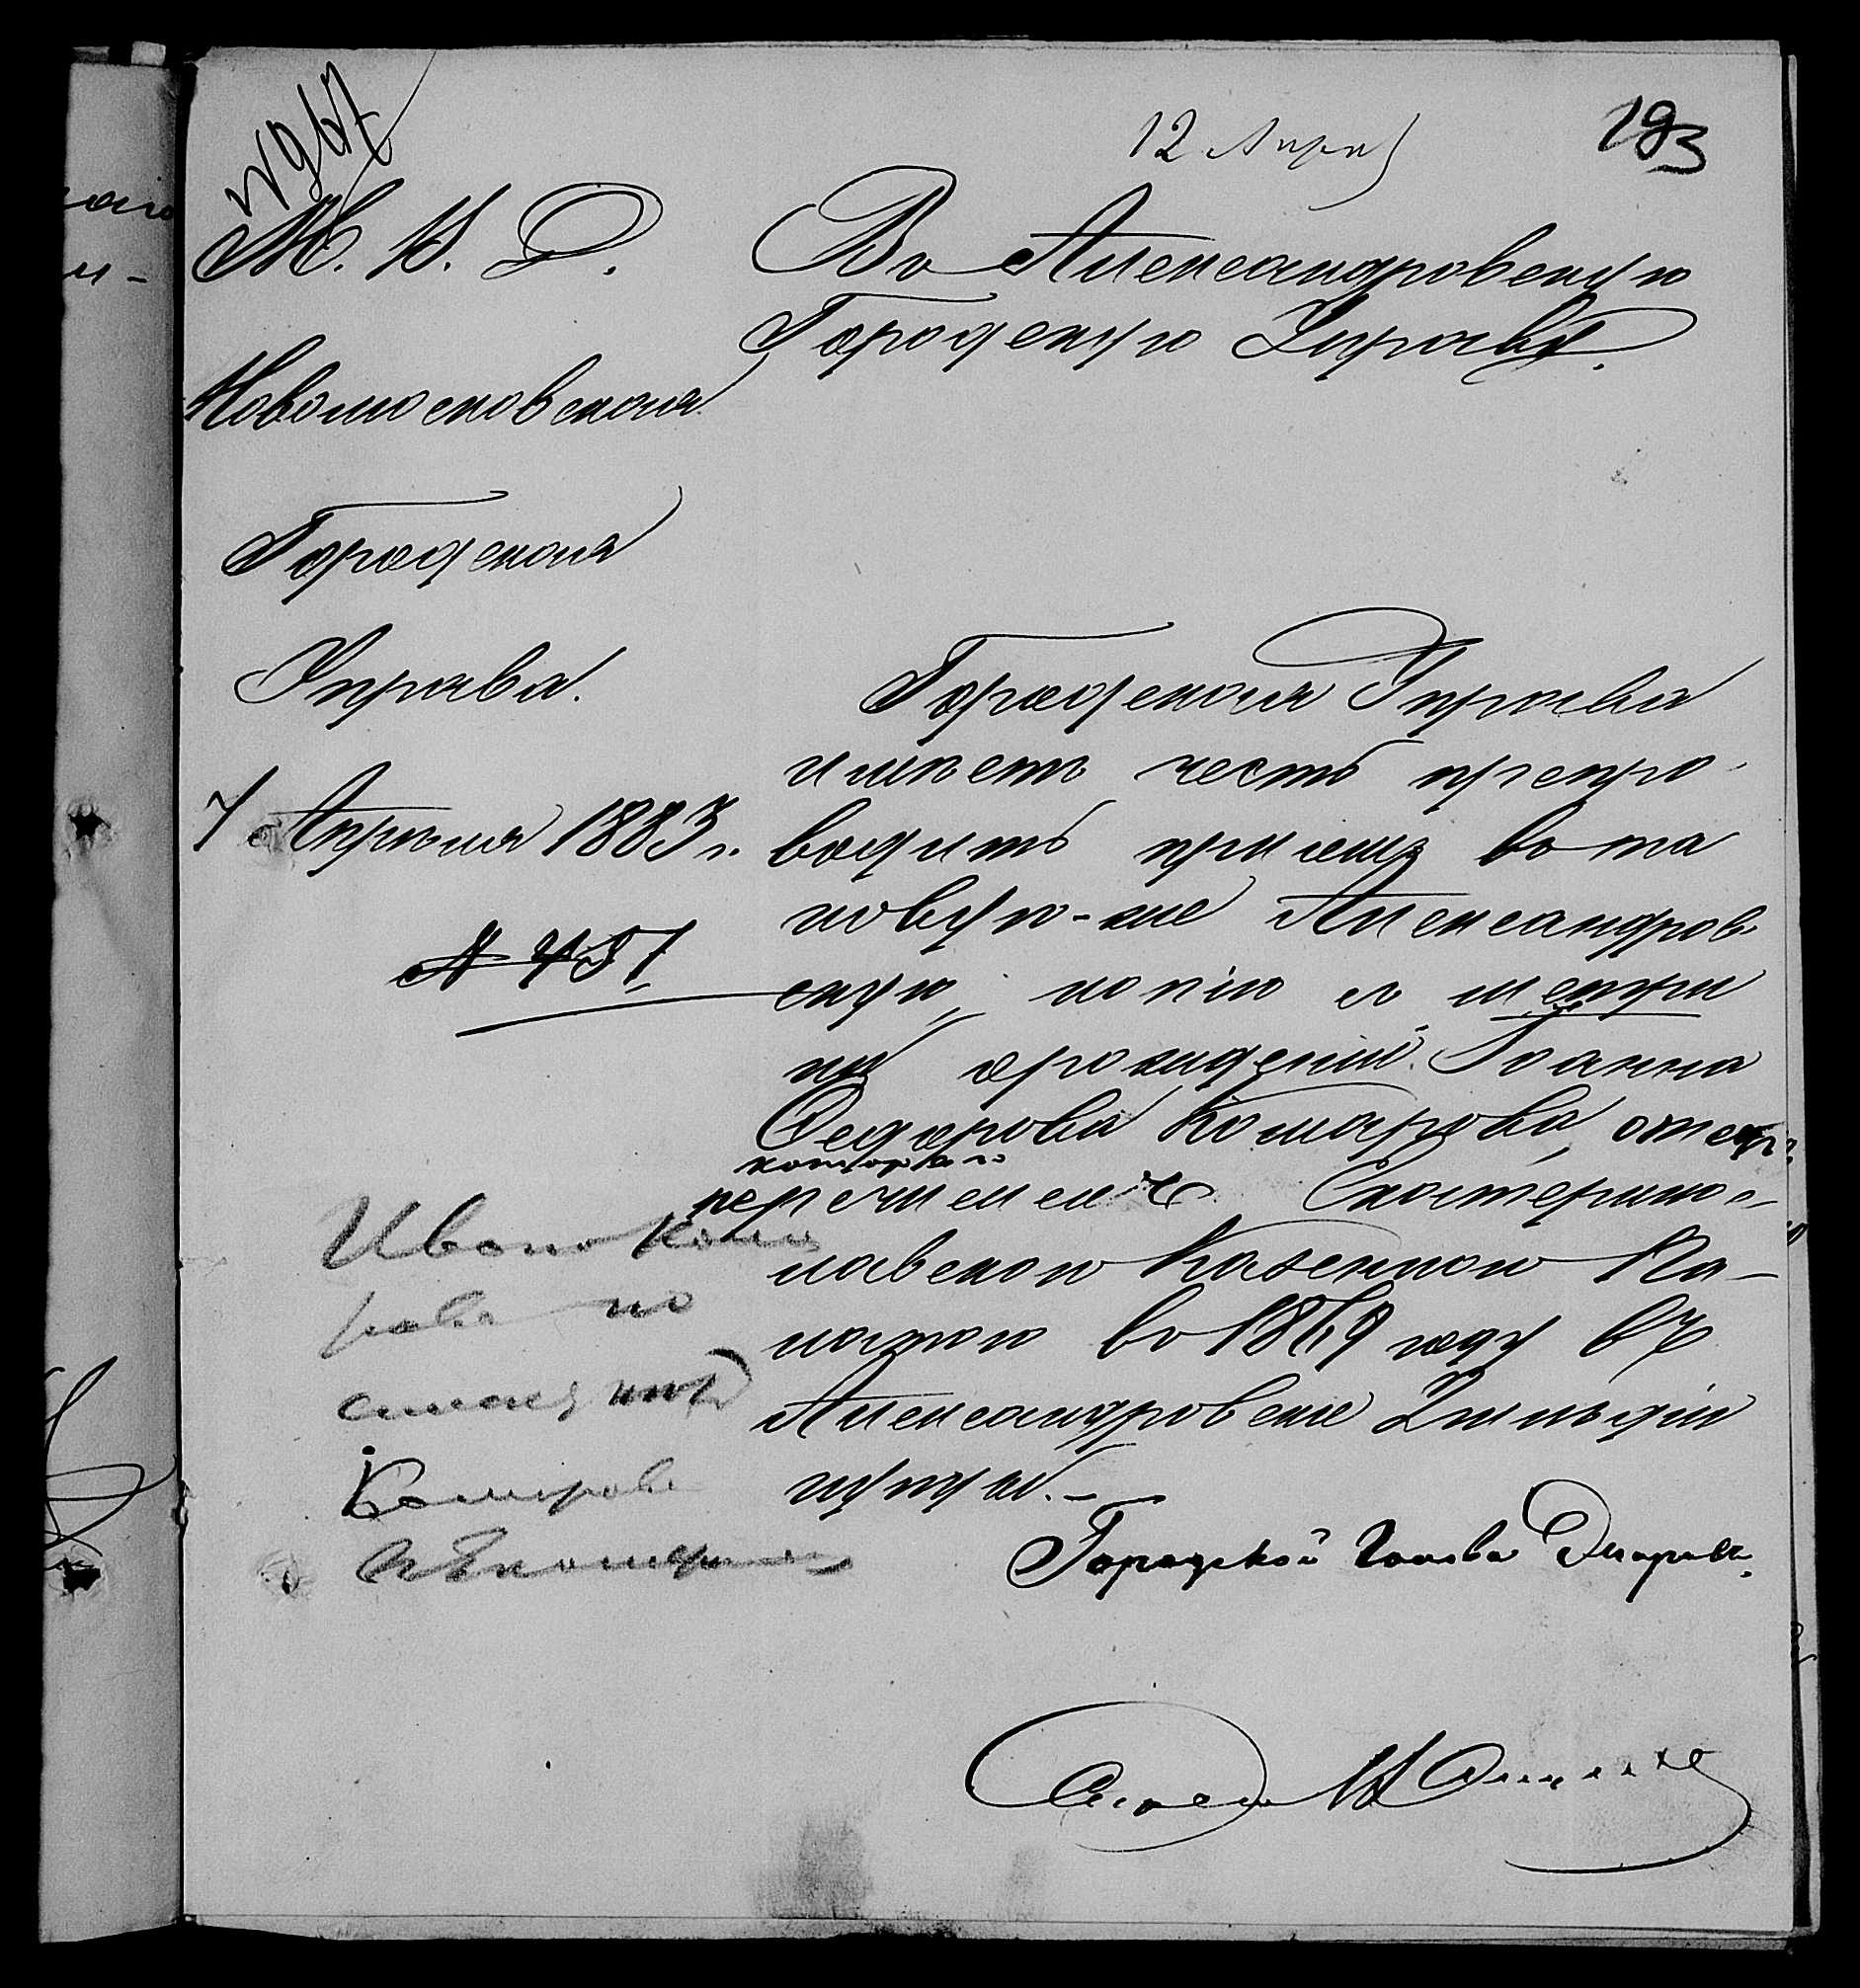 № 967
12 Апрѣ
193
М. В. Д.
Новомосковская
Городская
Управа.
7 Апрѣля 1883 г.
№ 451
Въ Александровскую
Городскую Управу.
Городская Управа
имѣетъ честь препро-
водить при семъ въ та
ковую-же Александров-
скую, копію о метри
ки о рожденіи Іоанна
Федорова Комарова, отецъ
котораго
перечисленъ Екатерино-
славскою Казенною Па-
латою въ 1869 году въ
Александровскіе
Городской Голова
Комаров